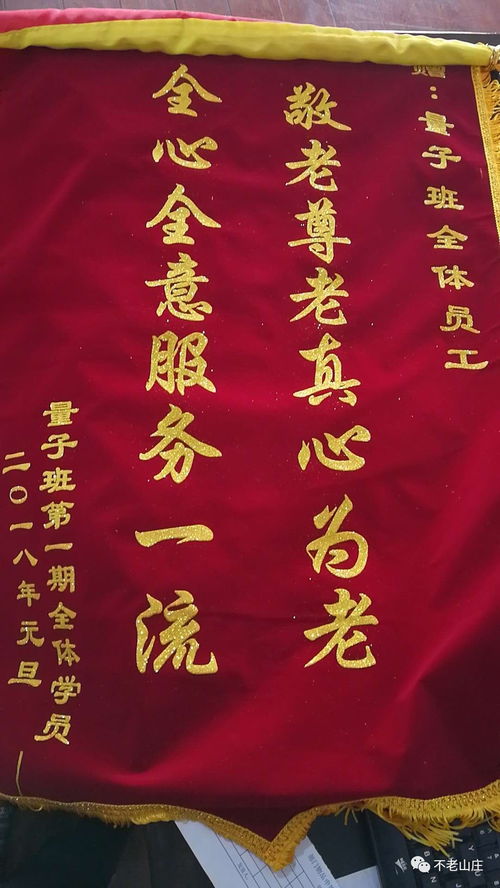 赠：量子班全体员工
敬老尊老真心为老
全心全意服务一流
量子班第一期全体学员
二〇一八年元旦
不老山庄